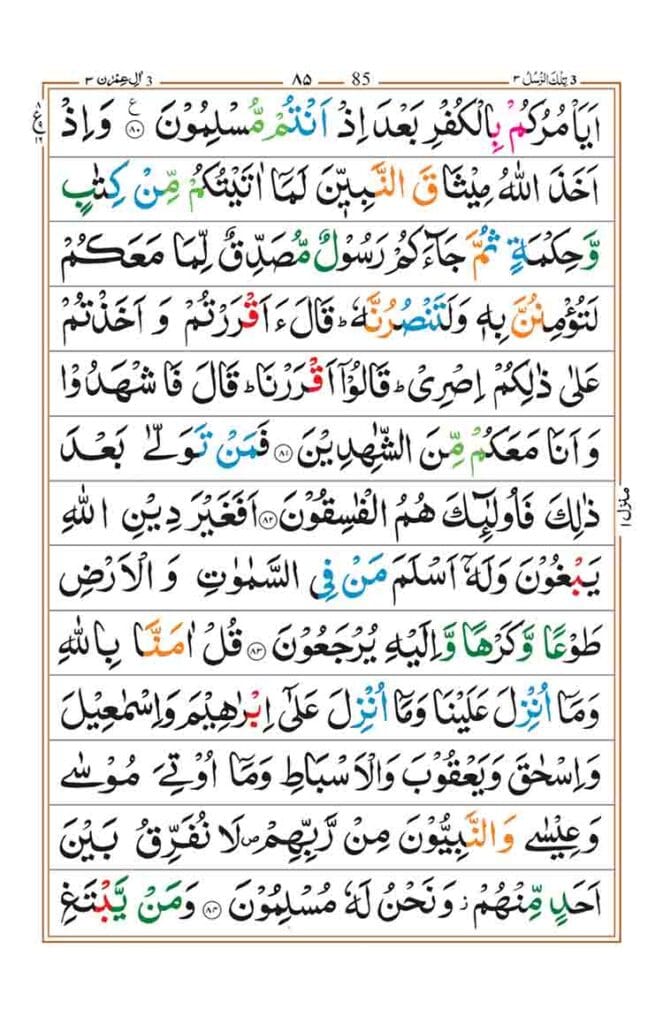 3 تِلْكَ الرُّسُلُ ٣
85 ٨٥
3 اٰلِ عِمْرٰن ٣
اَيَاْمُرُكُمْ بِالْكُفْرِ بَعْدَ اِذْ اَنْتُمْ مُّسْلِمُوْنَ ۟ع ﴿٨٠﴾ وَ اِذْ
اَخَذَ اللّٰهُ مِيْثَاقَ النَّبِيّٖنَ لَمَاۤ اٰتَيْتُكُمْ مِّنْ كِتٰبٍ
وَّحِكْمَةٍ ثُمَّ جَآءَكُمْ رَسُوْلٌ مُّصَدِّقٌ لِّمَا مَعَكُمْ
لَتُؤْمِنُنَّ بِهٖ وَلَتَنْصُرُنَّهٗ ؕ قَالَ ءَاَقْرَرْتُمْ وَ اَخَذْتُمْ
عَلٰى ذٰلِكُمْ اِصْرِىْ ؕ قَالُوْۤا اَقْرَرْنَا ؕ قَالَ فَاشْهَدُوْا
وَ اَنَا مَعَكُمْ مِّنَ الشّٰهِدِيْنَ ﴿٨١﴾ فَمَنْ تَوَلّٰى بَعْدَ
ذٰلِكَ فَاُولٰٓئِكَ هُمُ الْفٰسِقُوْنَ ﴿٨٢﴾ اَفَغَيْرَ دِيْنِ اللّٰهِ
يَبْغُوْنَ وَلَهٗۤ اَسْلَمَ مَنْ فِى السَّمٰوٰتِ وَ الْاَرْضِ
طَوْعًا وَّكَرْهًا وَّاِلَيْهِ يُرْجَعُوْنَ ﴿٨٣﴾ قُلْ اٰمَنَّا بِاللّٰهِ
وَمَاۤ اُنْزِلَ عَلَيْنَا وَمَاۤ اُنْزِلَ عَلٰٓى اِبْرٰهِيْمَ وَاِسْمٰعِيْلَ
وَاِسْحٰقَ وَيَعْقُوْبَ وَالْاَسْبَاطِ وَمَاۤ اُوْتِىَ مُوْسٰى
وَعِيْسٰى وَالنَّبِيُّوْنَ مِنْ رَّبِّهِمْ ۪ لَا نُفَرِّقُ بَيْنَ
اَحَدٍ مِّنْهُمْ ؗ وَنَحْنُ لَهٗ مُسْلِمُوْنَ ﴿٨٤﴾ وَمَنْ يَّبْتَغِ
منزل ١